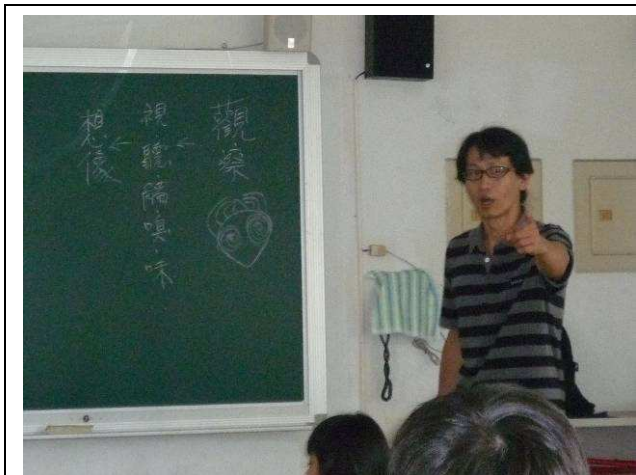 觀察
視聽觸嗅味
想像